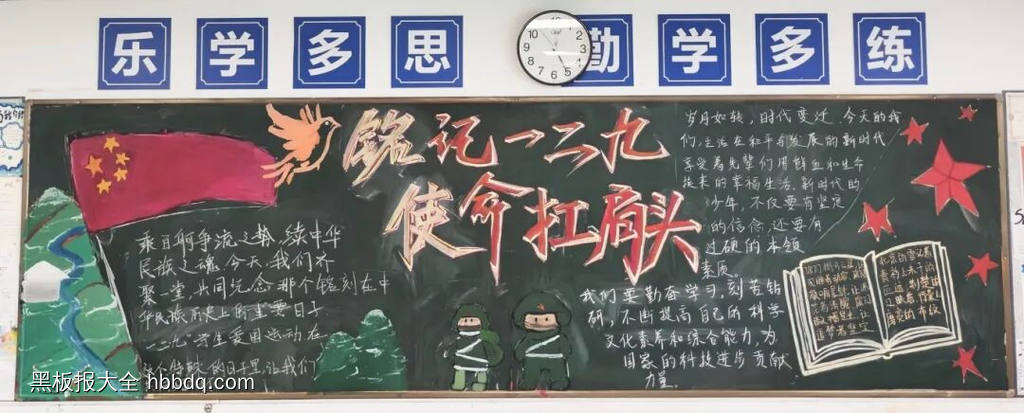 乐学多思 勤学多练
12 1 2 3 4 5 6 7 8 9 10 11
铭记一二九
使命扛肩头
乘百舸争流之势,续中华
民族之魂,今天,我们齐
聚一堂,共同纪念那个铭刻在中
华民族历史上的重要日子
"一二九"学生爱国运动在
的日子里,让我们
岁月如转,时代变迁,今天的我
们,生活在和平与发展的新时代
享受着先辈们用鲜血和生命
换来的幸福生活,新时代的
少年,不仅要有坚定
的信念,还要有
过硬的本领
素质。
我们要勤奋学习,刻苦钻
研,不断提高自己的科学
文化素养和综合能力,为
国家的科技进步贡献
力量。
黑板报大全 hbbdq.com